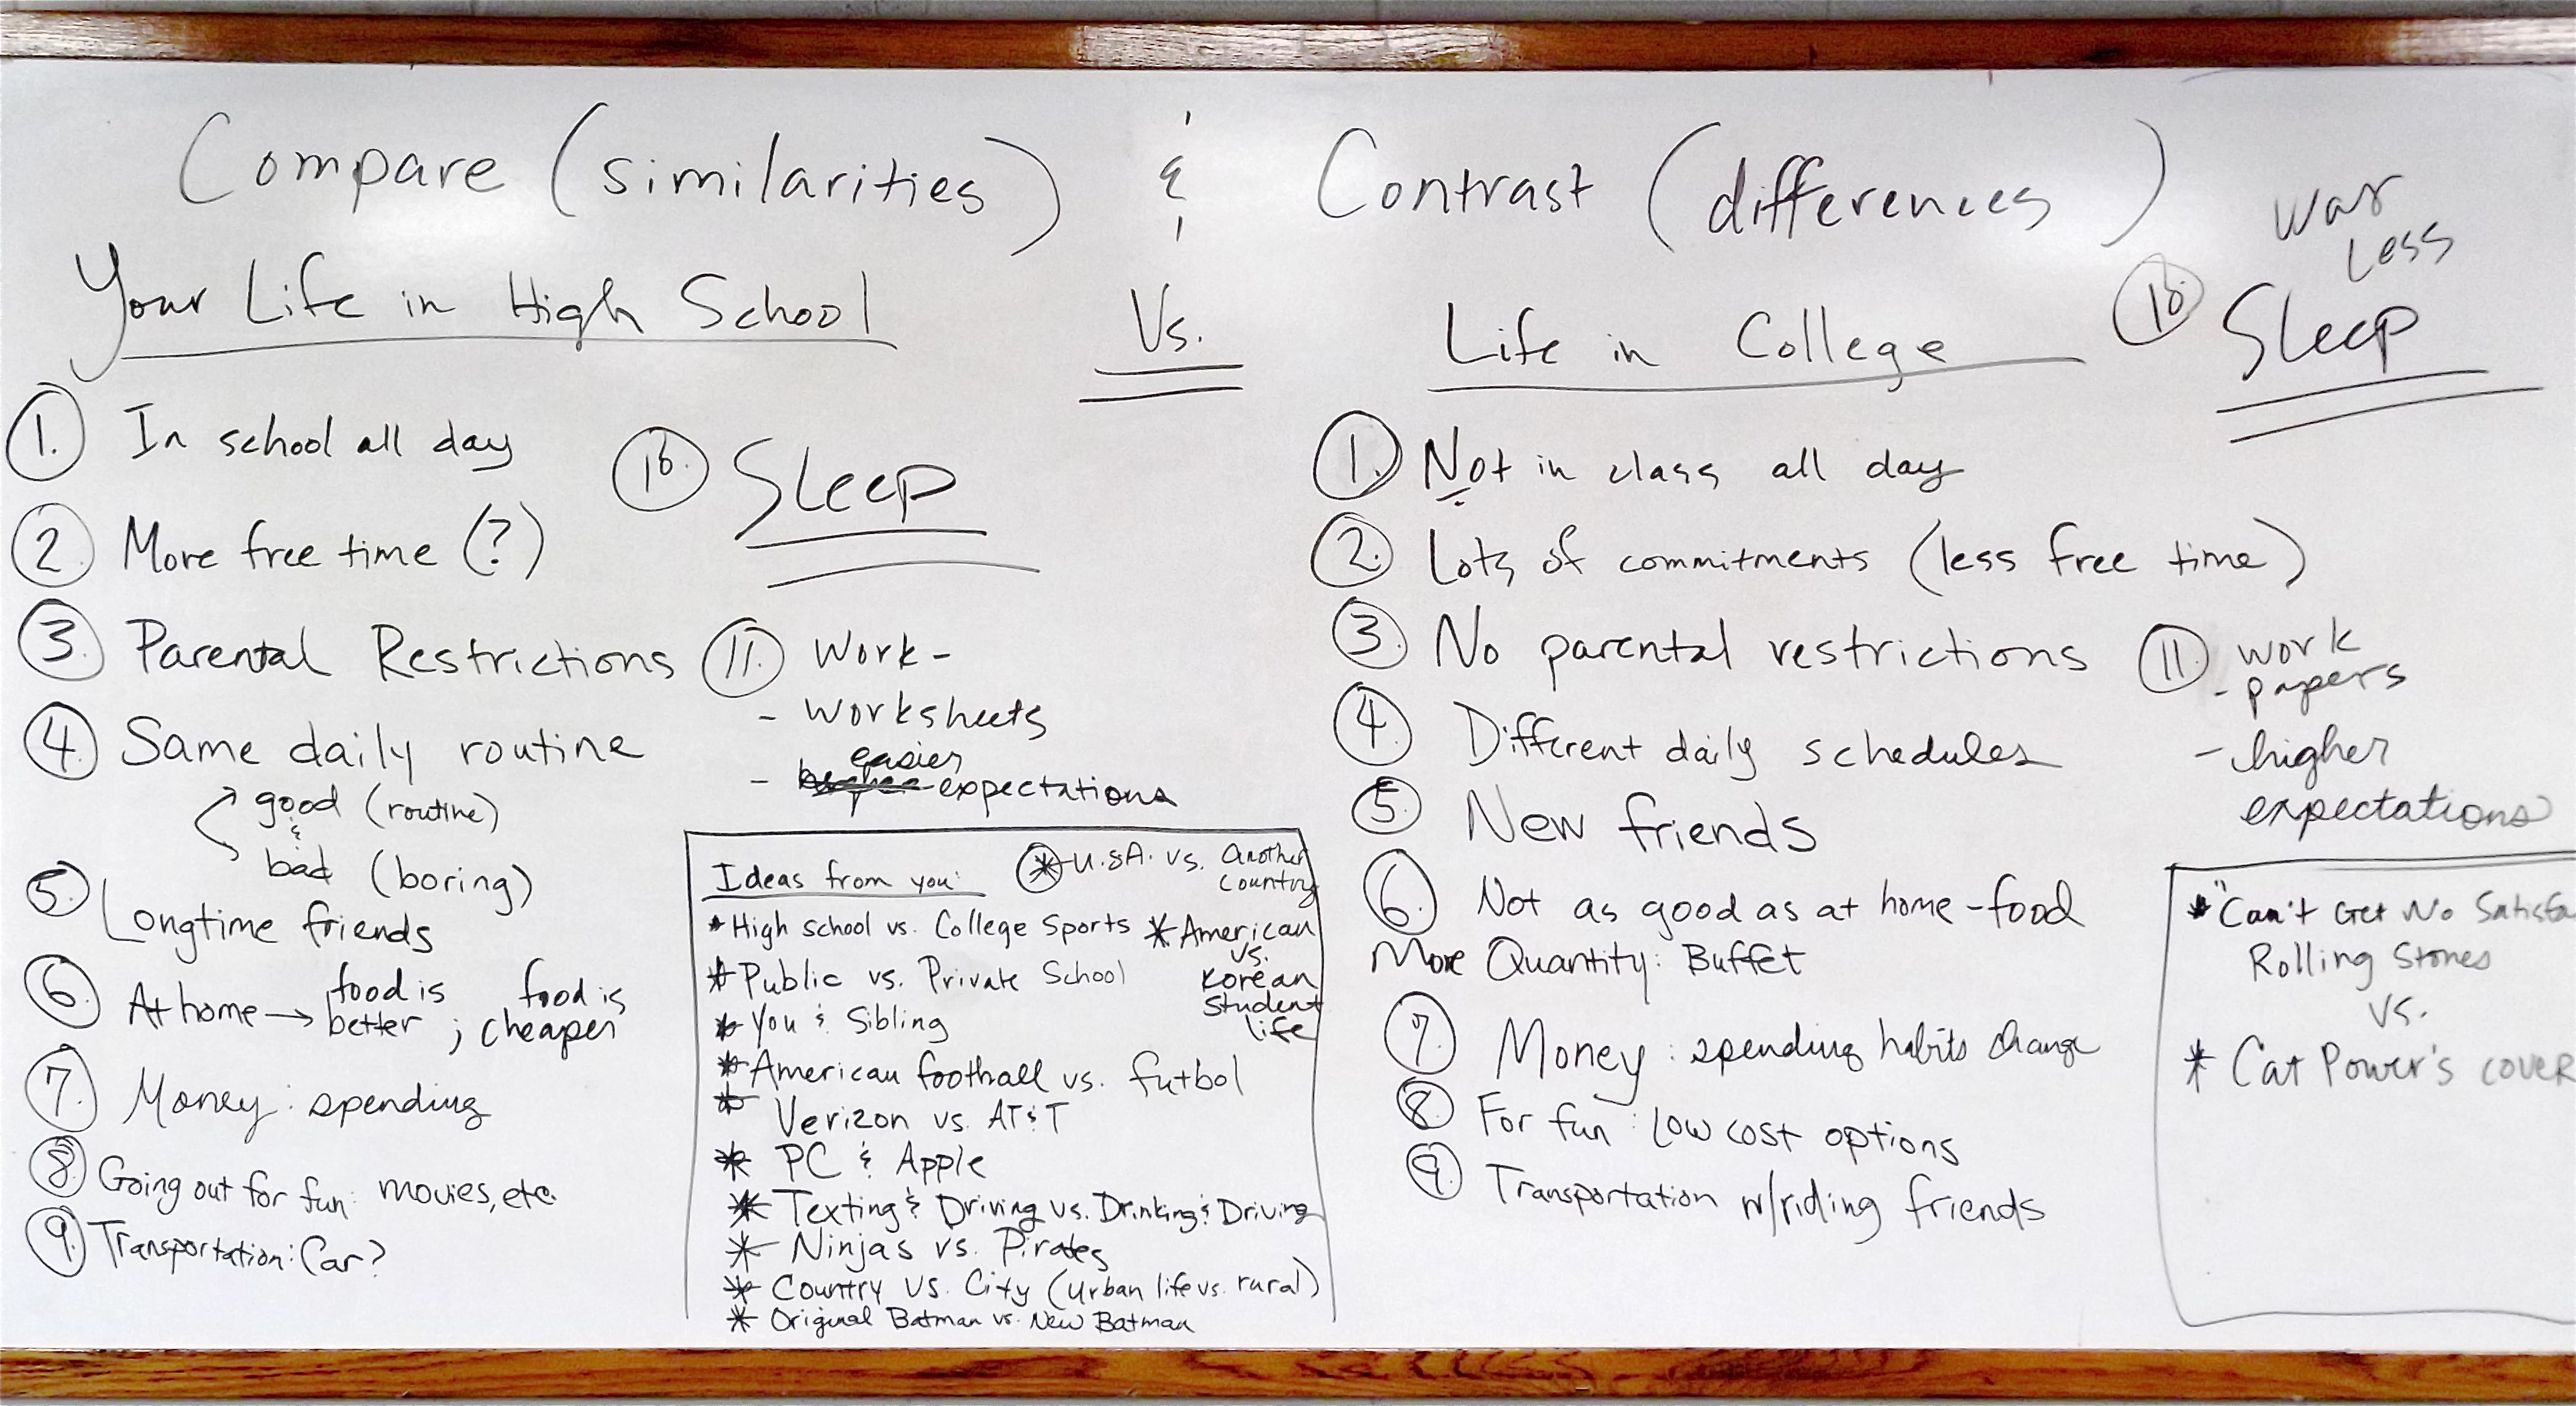 Compare (similarities) & Contrast (differences)
Your Life in High School
Vs.
Life in College
1. In school all day
2. More free time (?)
3. Parental Restrictions
4. Same daily routine
good (routine)
&
bad (boring)
5. Longtime friends
6. At home → food is better ; food is cheaper
7. Money: spending
8. Going out for fun: movies, etc.
9. Transportation: Car?
10. Sleep
11. Work-
- worksheets
easier
- expectations
Ideas from you:
* U.S.A. vs. Another Country
* High School vs. College Sports
* American
vs.
Korean
student
life
* Public vs. Private School
* You & Sibling
* American football vs. futbol
* Verizon vs. AT&T
* PC & Apple
* Texting & Driving vs. Drinking & Driving
* Ninjas vs. Pirates
* Country vs. City (Urban life vs. rural)
* Original Batman vs. New Batman
1. Not in class all day
2. Lots of commitments (less free time)
3. No parental restrictions
4. Different daily schedules
5. New friends
6. Not as good as at home - food
More Quantity: Buffet
7. Money: spending habits change
8. For fun: low cost options
9. Transportation w/riding friends
way
less
10. Sleep
11. work
- papers
- higher
expectations
* "Can't Get No Satisfa
Rolling Stones
vs.
* Cat Power's cover